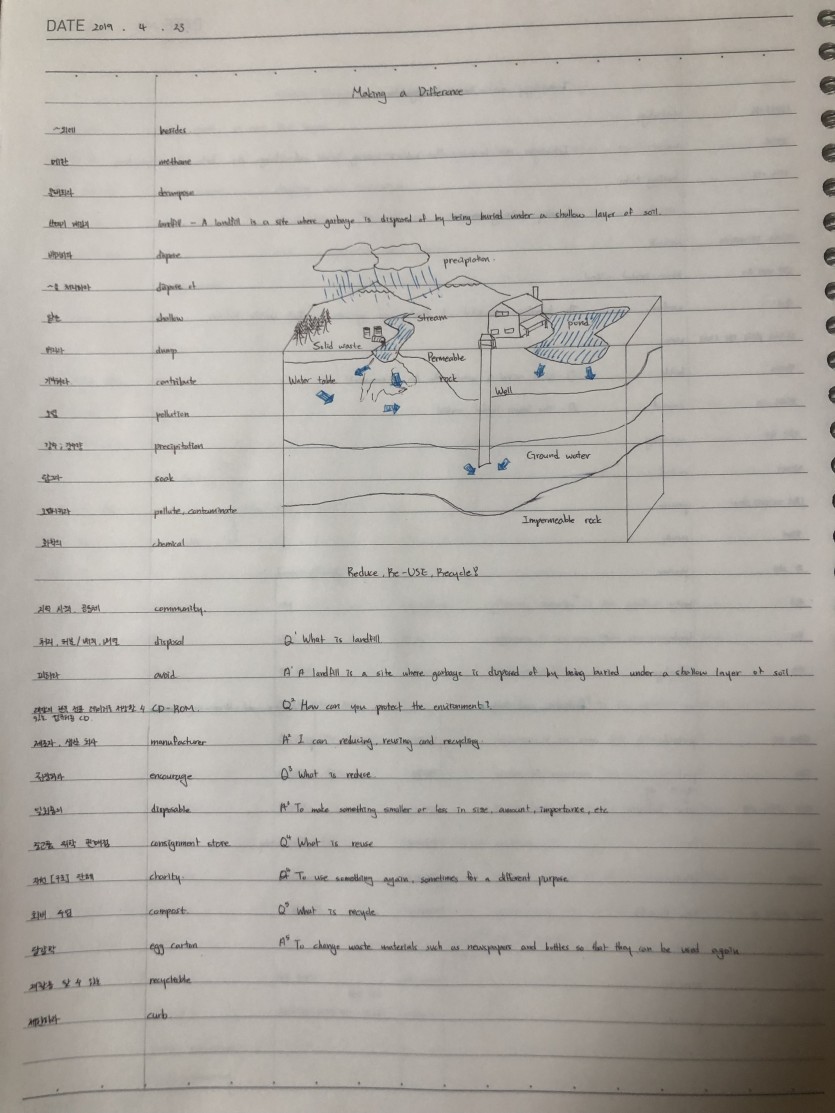 DATE 2019 . 4 . 25
Making a Difference
~외에 besides
메탄 methane
분해되다 decompose
landfill - A landfill is a site where garbage is disposed of by being buried under a shallow layer of soil.
dispose
dispose of
얕은 shallow
버리다 dump
기여하다 contribute
오염 pollution
precipitation
담그다 soak
오염시키다 pollute, contaminate
화학의 chemical
precipitation.
Stream
pond
Solid waste
Permeable
rock
Water table
Well
Ground water
Impermeable rock
Reduce, Re-USE, Recycle?
community.
disposal Q¹ What is landfill
피하다 avoid A¹ A landfill is a site where garbage is disposed of by being buried under a shallow layer of soil.
CD-ROM. Q² How can you protect the environment?
manufacturer A² I can reducing, reusing and recycling.
encourage Q³ What is reduce
일회용의 disposable A³ To make something smaller or less in size, amount, importance, etc
consignment store Q⁴ What is reuse
자선 [구호] 단체 charity. A⁴ To use something again, sometimes for a different purpose
퇴비 compost. Q⁵ What is recycle
egg carton A⁵ To change waste materials such as newspapers and bottles so that they can be used again
recyclable
curb.